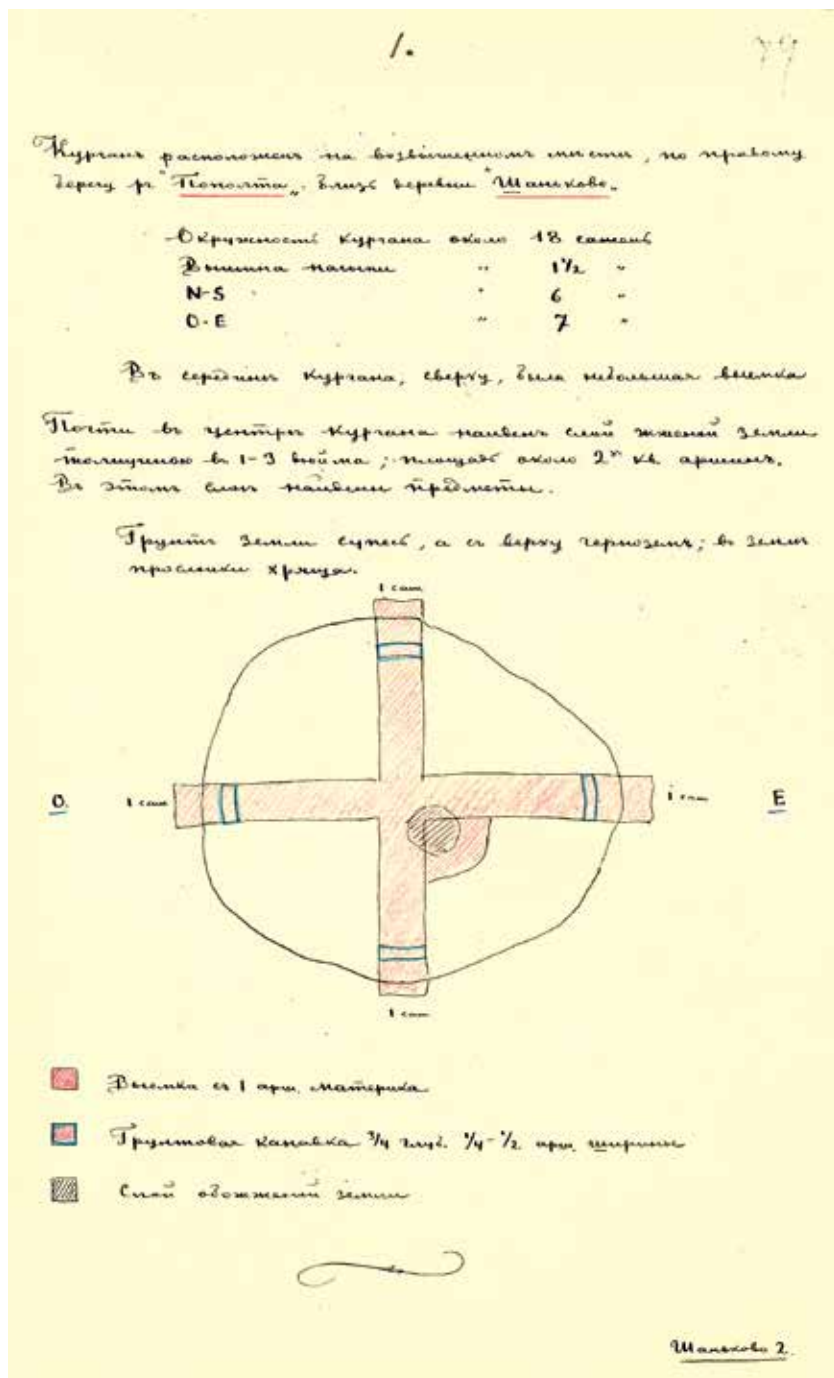 1.
79
Курганъ расположенъ на возвышенномъ мѣстѣ, по правому
берегу р. "Пополта„ близъ деревни "Шаньково„
Окружность кургана около 18 сажень
Вышина насыпи " 1½ "
N-S " 6 "
O-E " 7 "
Въ серединѣ кургана, сверху, была небольшая выемка
Почти въ центрѣ кургана найденъ слой жженой земли
толщиною въ 1-3 вюйма; площадь около 2ˣ кв. аршинъ.
Въ этомъ слоѣ найдены предметы.
Грунтъ земли супесь, а съ верху черноземъ; въ землѣ
прослойки хряща.
1 саж
O. 1 саж 1 саж E
1 саж
Выемка съ 1 арш. материка
Грунтовая канавка ¾ глуб. ¼-½ арш. ширины
Слой обожженой земли
Шаньково 2.